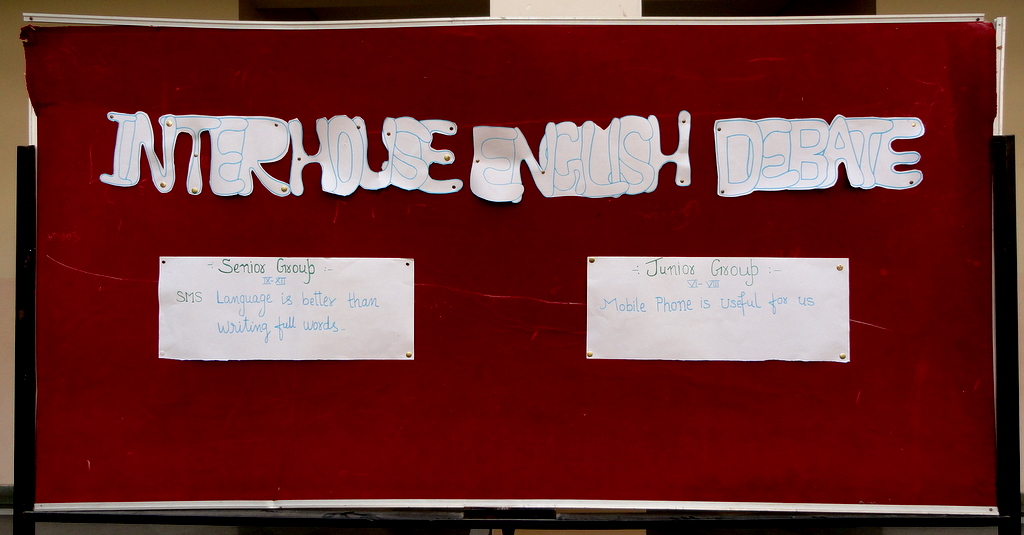 INTERHOUSE ENGLISH DEBATE
-: Senior Group :-
IX-XII
SMS Language is better than
writing full words..
-: Junior Group :-
VI-VIII
Mobile Phone is useful for us